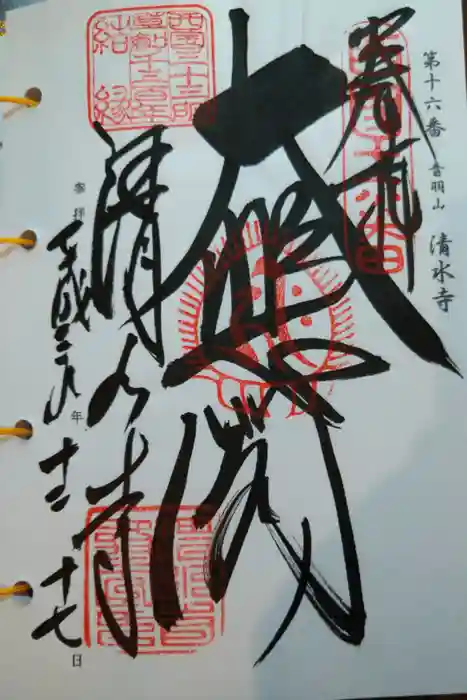 第十六番 音羽山 清水寺
奉拝
大悲閣
西國三十三所
草創千三百年
結縁
清水寺
参拝 平成二九年十二十七日